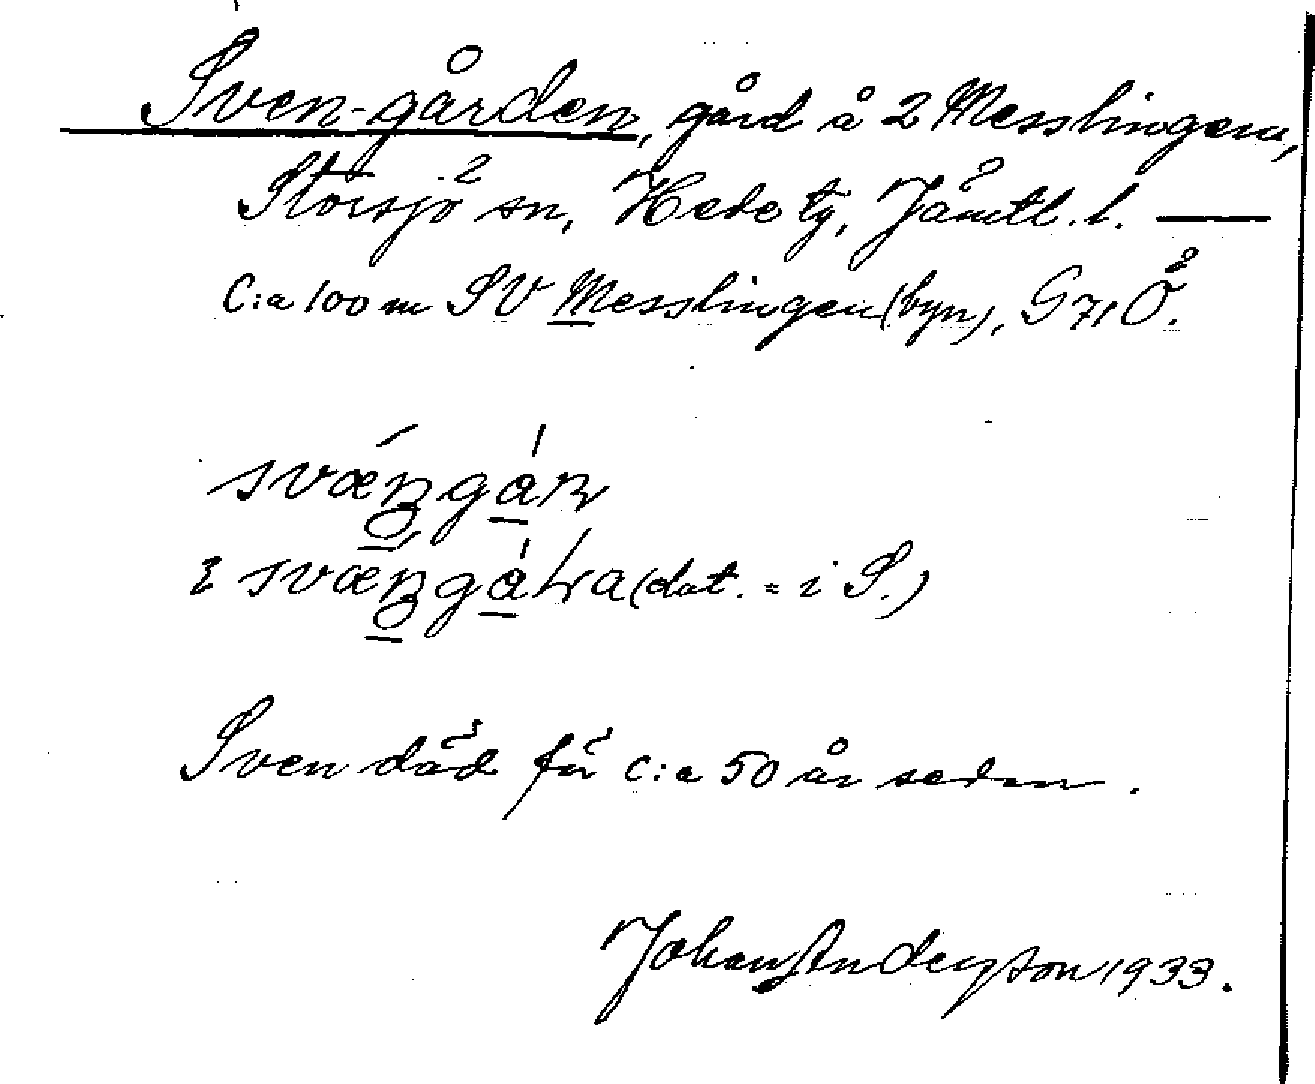 Sven-gården, gård å 2 Messlingen,
Storsjö sn, Hede tg, Jämtl. l. —
C:a 100 m SV Messlingen (byn), G71Ö.
(dat. = i S.)
Sven död för c:a 50 år sedan.
Johan Anderson 1933.